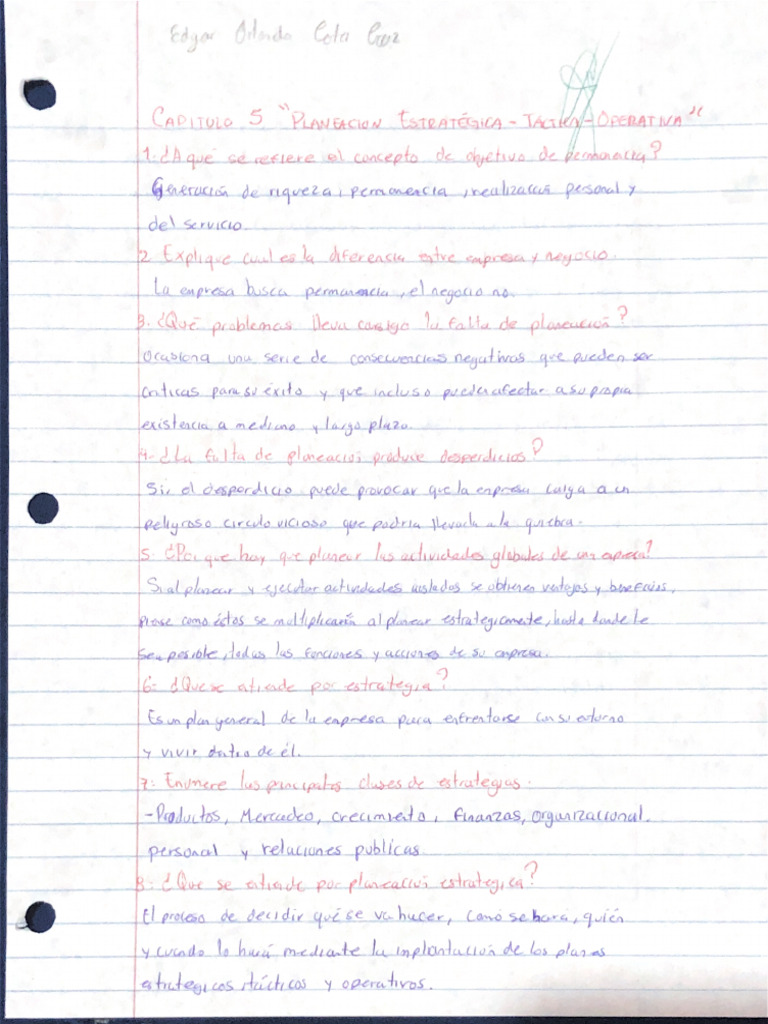 Edgar Orlando Cota Cruz
CAPITULO 5 "PLANEACION ESTRATÉGICA - TACTICA - OPERATIVA"
1. ¿A qué se refiere el concepto de objetivo de permanencia?
Generación de riqueza, permanencia, realización personal y
del servicio.
2. Explique cual es la diferencia entre empresa y negocio.
La empresa busca permanencia, el negocio no.
3. ¿Qué problemas lleva consigo la falta de planeación?
Ocasiona una serie de consecuencias negativas que pueden ser
criticas para su éxito y que incluso pueden afectar a su propia
existencia a mediano y largo plazo.
4- ¿La falta de planeación produce desperdicios?
Si, el desperdicio puede provocar que la empresa caiga a un
peligroso circulo vicioso que podria llevarla a la quiebra.
5. ¿Por que hay que planear las actividades globales de una empresa?
Si al planear y ejecutar actividades aisladas se obtienen ventajas y beneficios,
piense como éstos se multiplicarán al planear estrategicamente, hasta donde le
sea posible, todas las funciones y acciones de su empresa.
6- ¿Que se entiende por estrategia?
Es un plan general de la empresa para enfrentarse con su entorno
y vivir dentro de él.
7: Enumere las principales clases de estrategias.
-Productos, Mercadeo, crecimiento, finanzas, organizacional,
personal y relaciones publicas.
8: ¿Que se entiende por planeación estrategica?
El proceso de decidir qué se va hacer, como se hará, quién
y cuando lo hará mediante la implantación de los planes
estrategicos, tácticos y operativos.